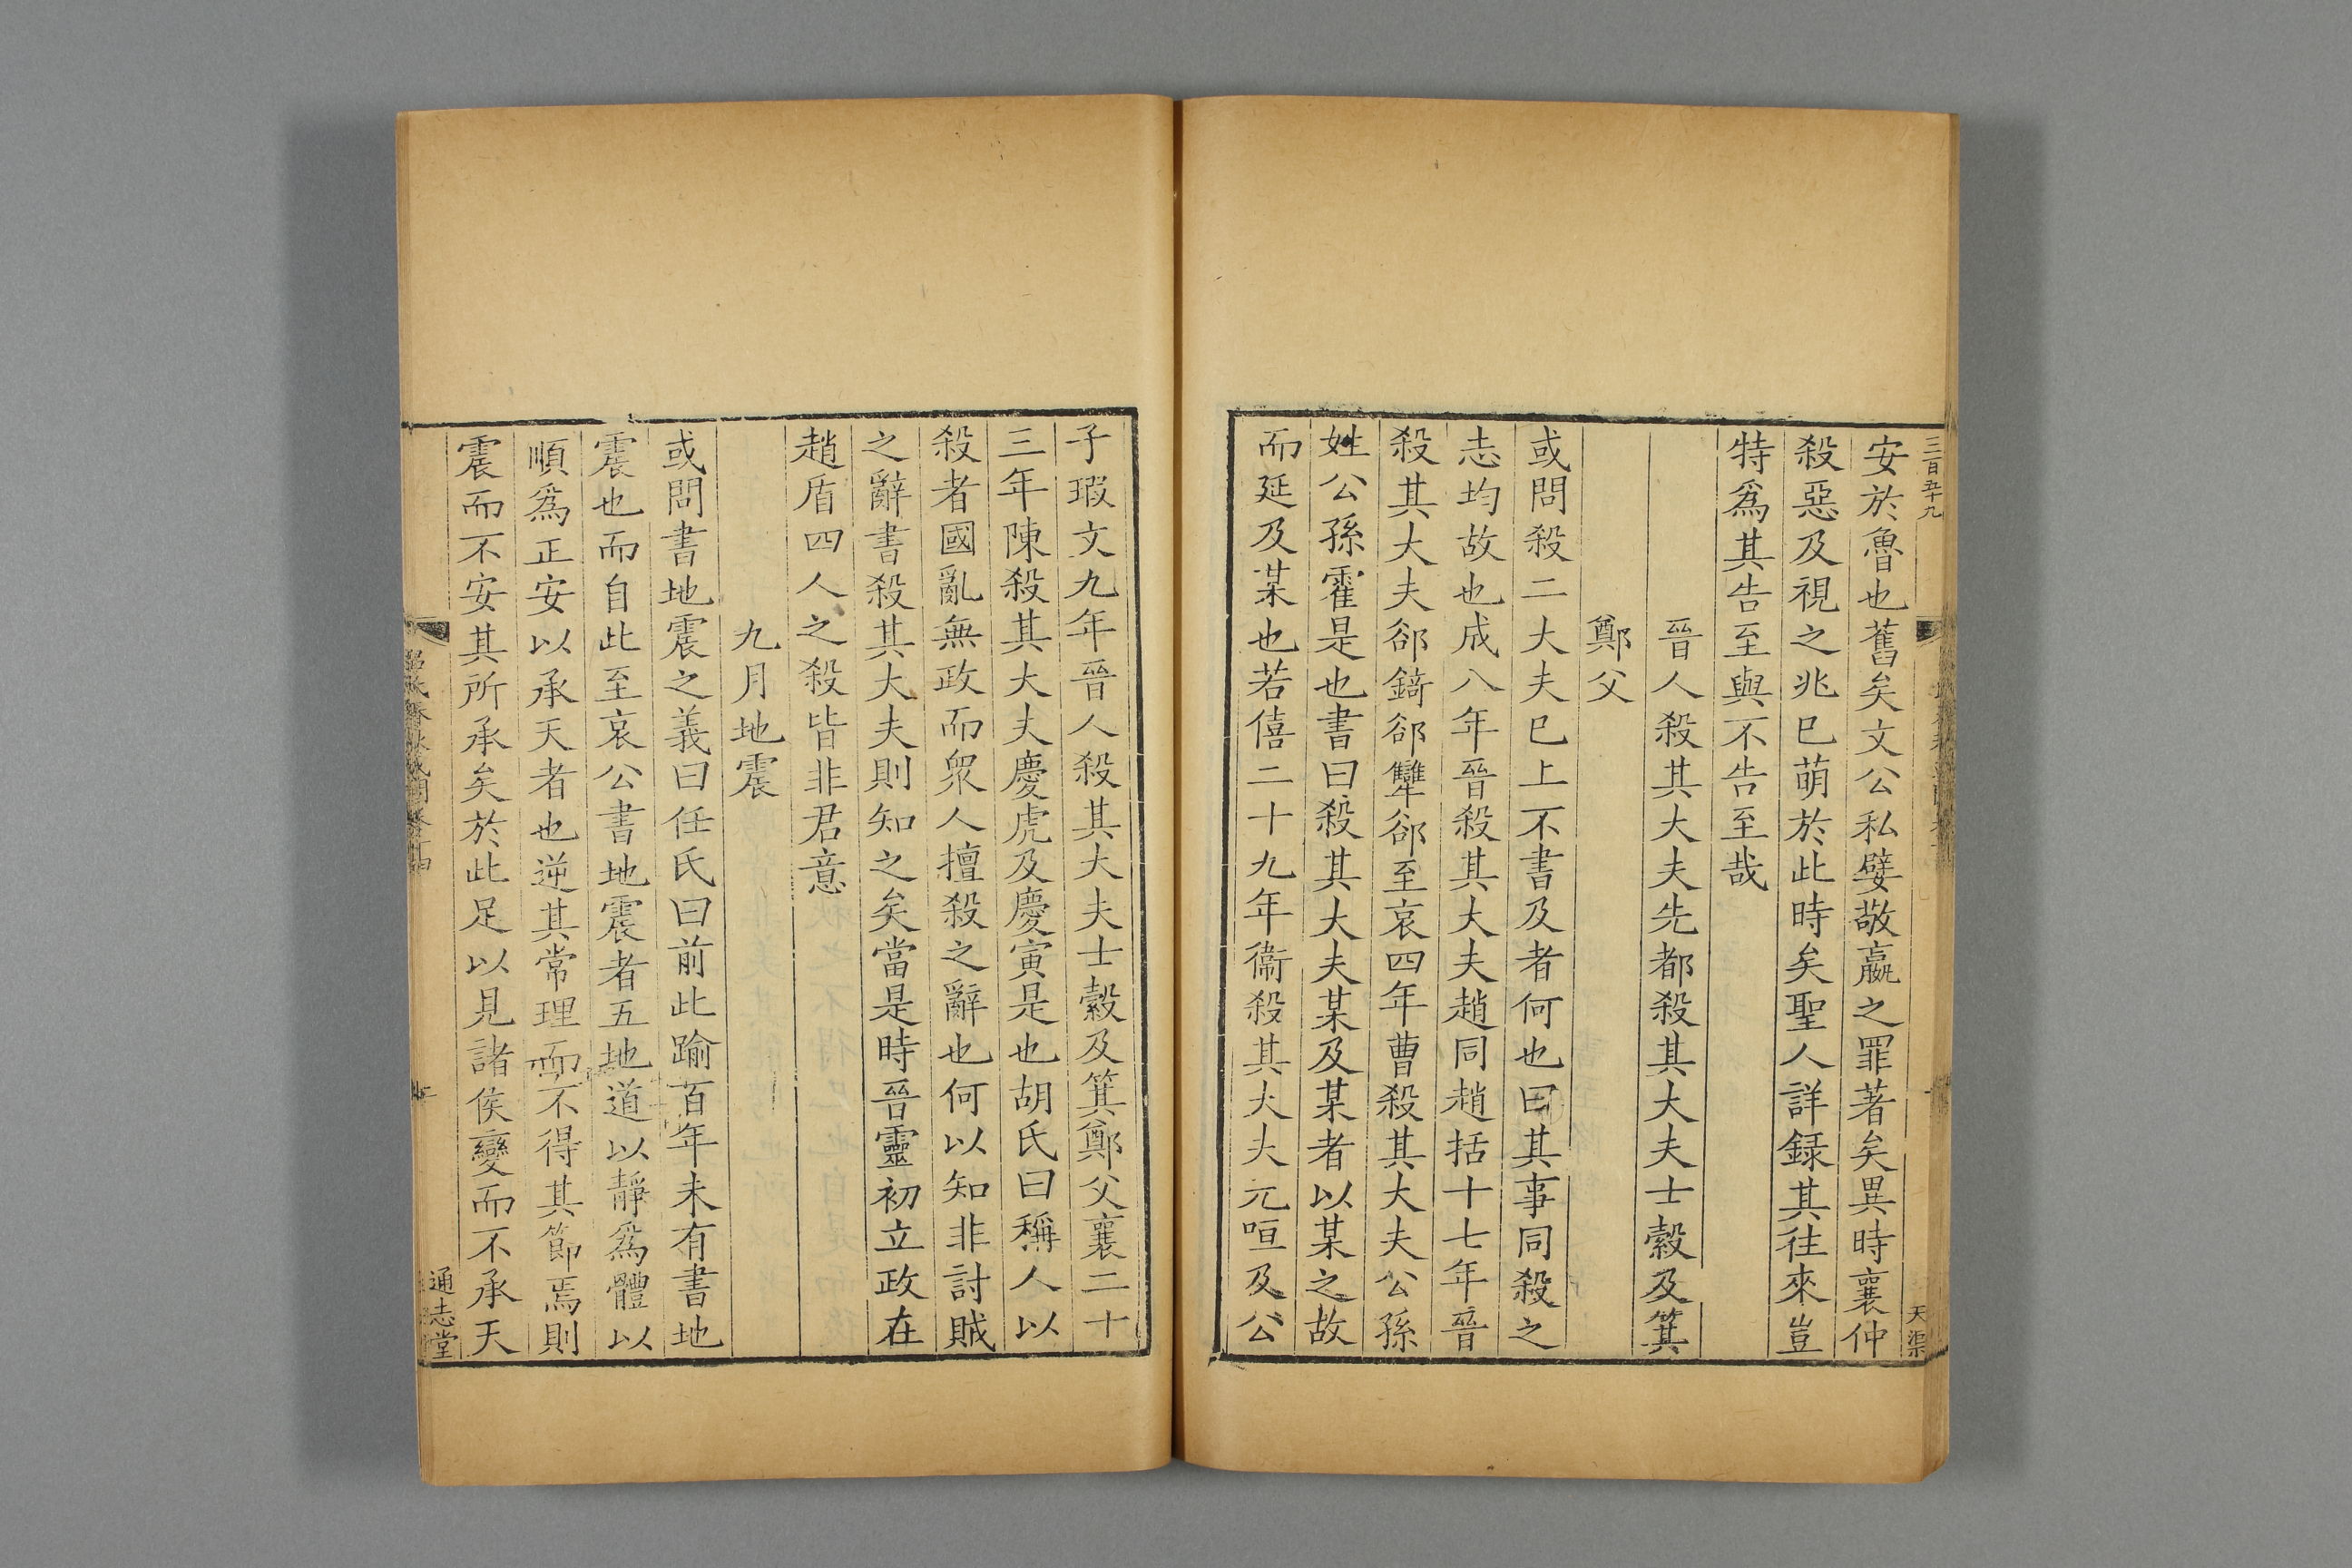 三百五十九
天渠
安於魯也舊矣文公私嬖敬嬴之罪著矣異時襄仲
殺惡及視之兆已萌於此時矣聖人詳録其往來豈
特爲其告至與不告至哉
晉人殺其大夫先都殺其大夫士縠及箕
鄭父
或問殺二大夫已上不書及者何也曰其事同殺之
志均故也成八年晉殺其大夫趙同趙括十七年晉
殺其大夫郤錡郤犨郤至哀四年曹殺其大夫公孫
姓公孫霍是也書曰殺其大夫某及某者以某之故
而延及某也若僖二十九年衞殺其大夫元咺及公
子瑕文九年晉人殺其大夫士縠及箕鄭父襄二十
三年陳殺其大夫慶虎及慶寅是也胡氏曰稱人以
殺者國亂無政而衆人擅殺之辭也何以知非討賊
之辭書殺其大夫則知之矣當是時晉靈初立政在
趙盾四人之殺皆非君意
九月地震
或問書地震之義曰任氏曰前此踰百年未有書地
震也而自此至哀公書地震者五地道以靜爲體以
順爲正安以承天者也逆其常理而不得其節焉則
震而不安其所承矣於此足以見諸侯變而不承天
通志堂